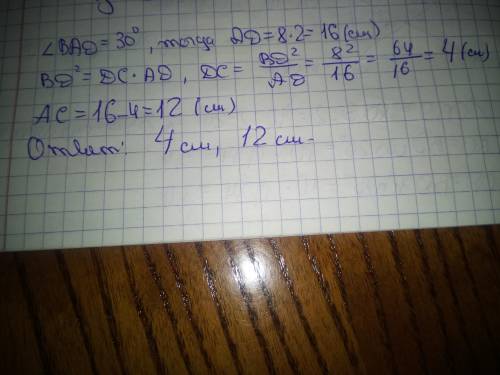 ∠BAD = 30°, тогда AD = 8·2 = 16 (см)
BD² = DC·AD, DC = BD²/AD = 8²/16 = 64/16 = 4 (см)
AC = 16-4 = 12 (см)
Ответ: 4 см, 12 см.